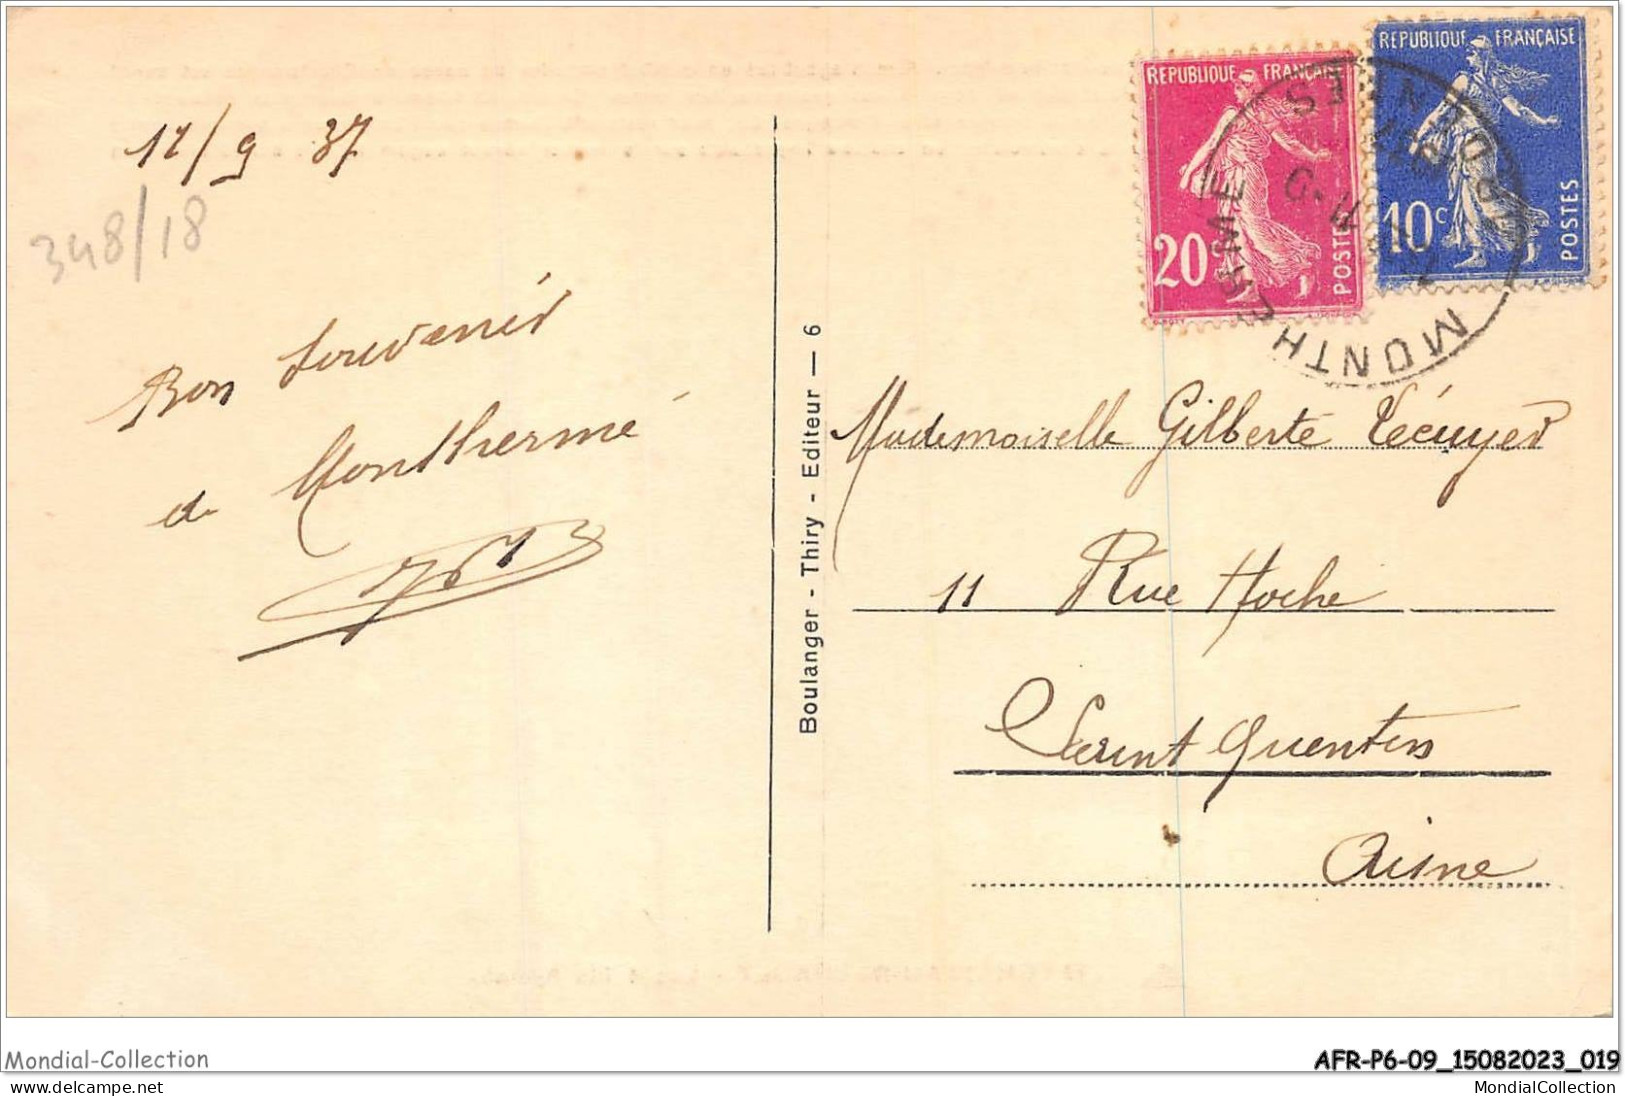 11/9 37
348/18
Bon souvenir
de Monthermé
Boulanger - Thiry - Editeur — 6
REPUBLIQUE FRANÇAISE
20c
POSTES
REPUBLIQUE FRANÇAISE
10c
POSTES
MONTHERMÉ
ARDENNES
Mademoiselle Gilberte Lécuyer
11 Rue Hoche
Saint Quentin
Aisne
Mondial-Collection
AFR-P6-09_15082023_019
www.delcampe.net
MondialCollection